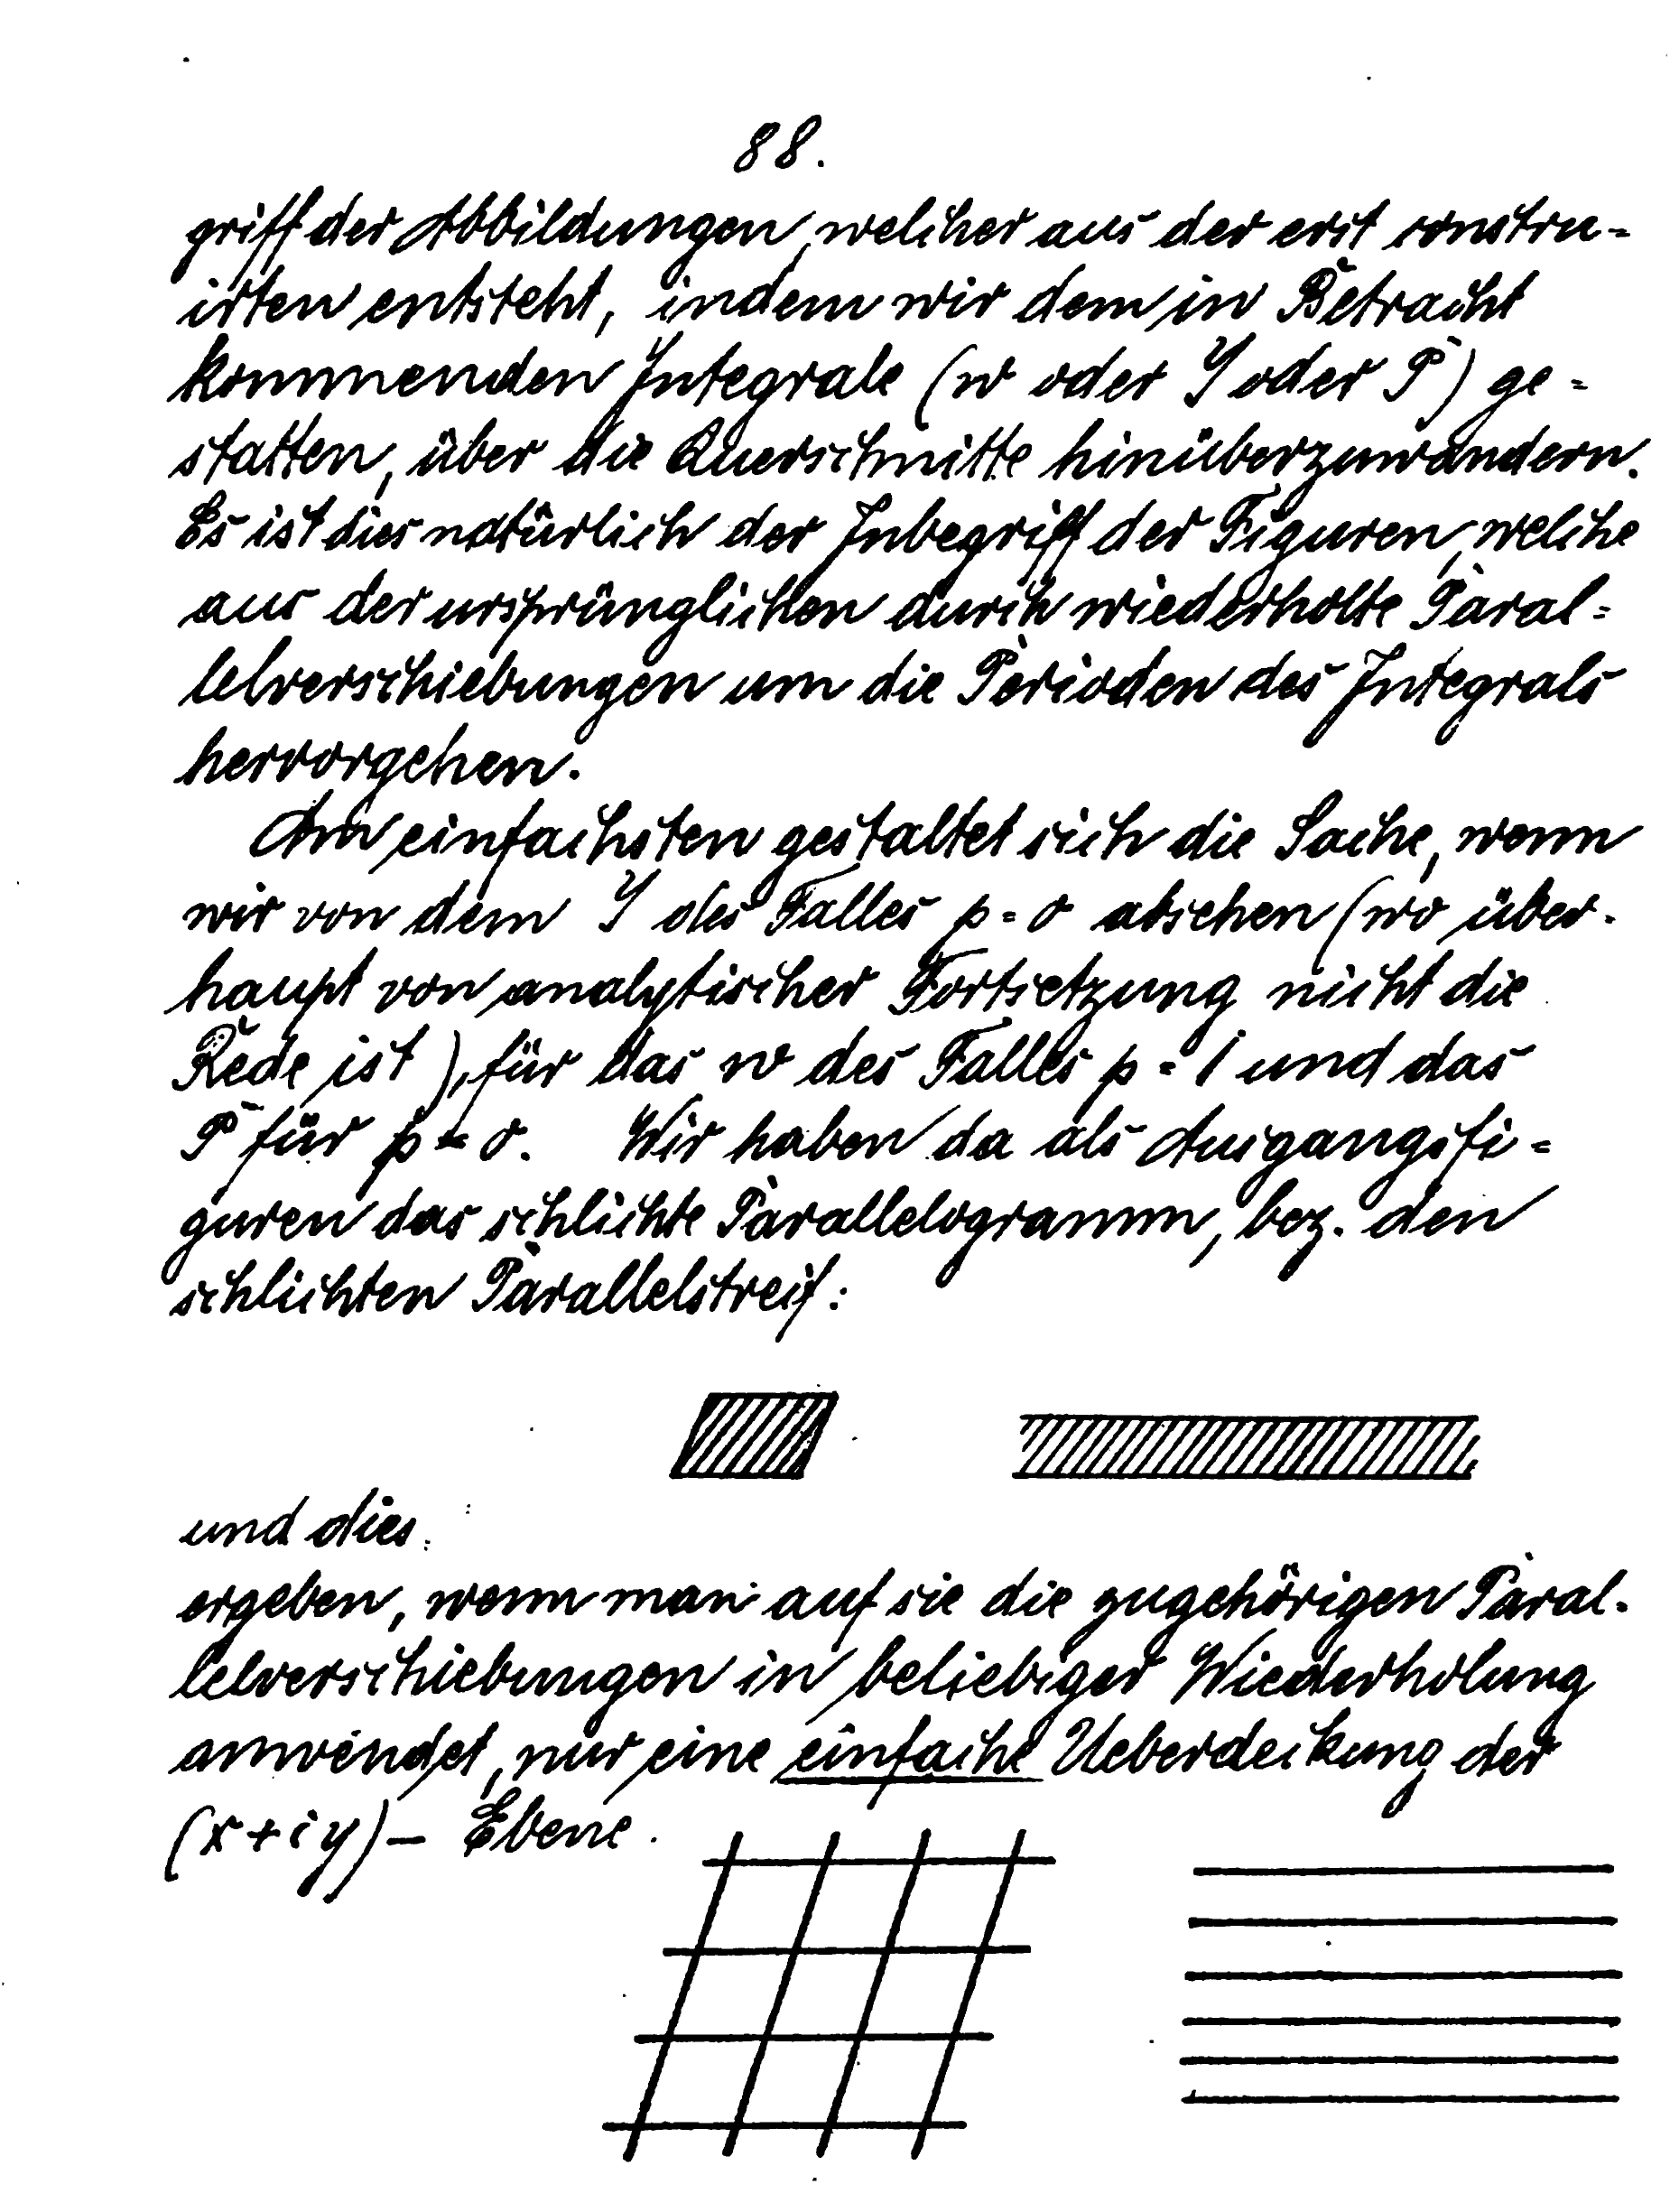 88.
griff der Abbildungen, welcher aus der erst constru-
irten entsteht, indem wir dem in Betracht
kommenden Integrale (w oder Y oder P) ge-
statten, über die Querschnitte hinüberzuwandern.
Es ist dies natürlich der Inbegriff der Figuren, welche
aus der ursprünglichen durch wiederholte Paral-
lelverschiebungen um die Perioden des Integrals
hervorgehen.
Am einfachsten gestaltet sich die Sache, wenn
wir von dem Y des Falles p=0 absehen (wo über-
haupt von analytischer Fortsetzung nicht die
Rede ist), für das w des Falles p=1 und das
P für p=0. Wir haben da als Ausgangsfi-
guren das schlichte Parallelogramm, bez. den
schlichten Parallelstreif:
und dies
ergeben, wenn man auf sie die zugehörigen Paral-
lelverschiebungen in beliebiger Wiederholung
anwendet, nur eine einfache Ueberdeckung der
(x+iy)- Ebene.